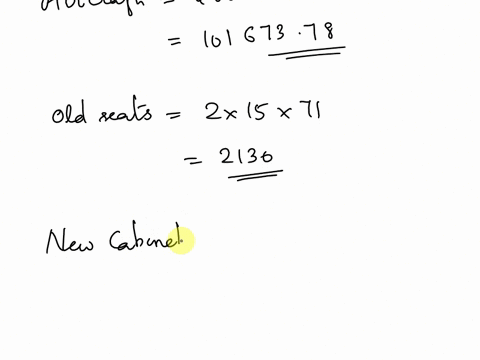 = 101673.78
Old seats = 2 × 15 × 71
= 2130
New Cabinet